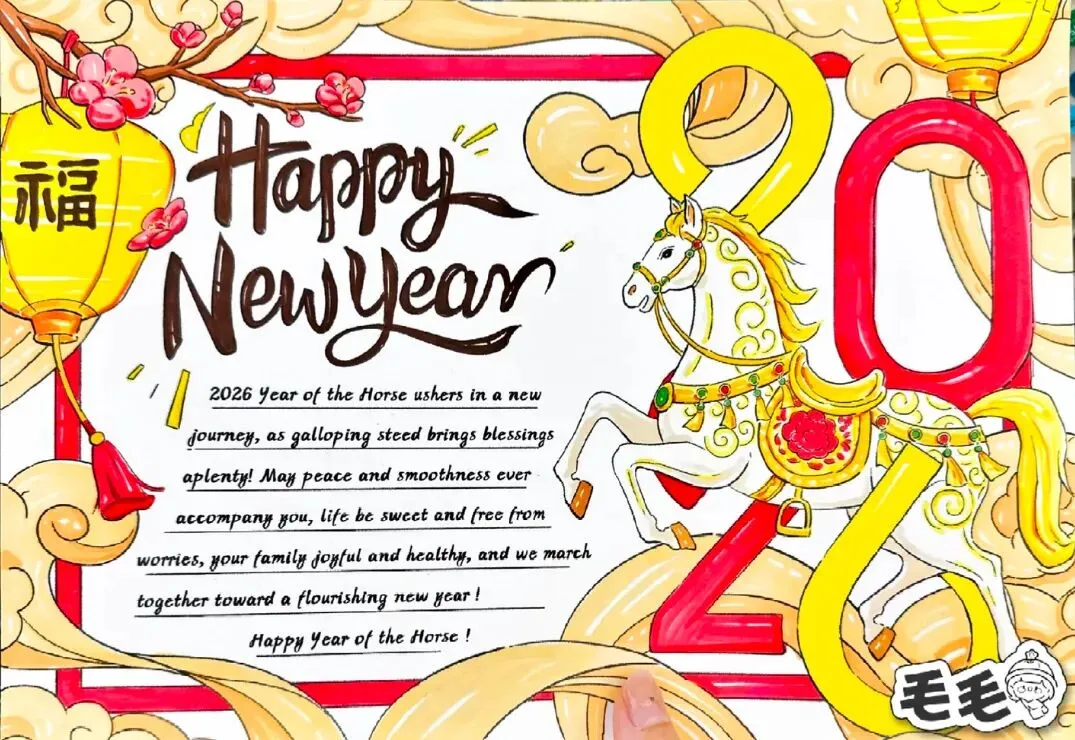 福
Happy
New Year
2026 Year of the Horse ushers in a new
journey, as galloping steed brings blessings
aplenty! May peace and smoothness ever
accompany you, life be sweet and free from
worries, your family joyful and healthy, and we march
together toward a flourishing new year!
Happy Year of the Horse!
2026
毛毛